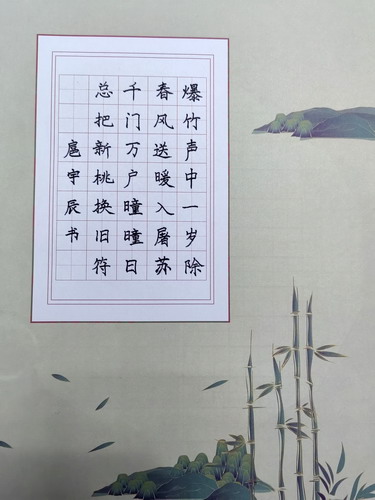 爆竹声中一岁除
春风送暖入屠苏
千门万户曈曈日
总把新桃换旧符
扈宇辰书